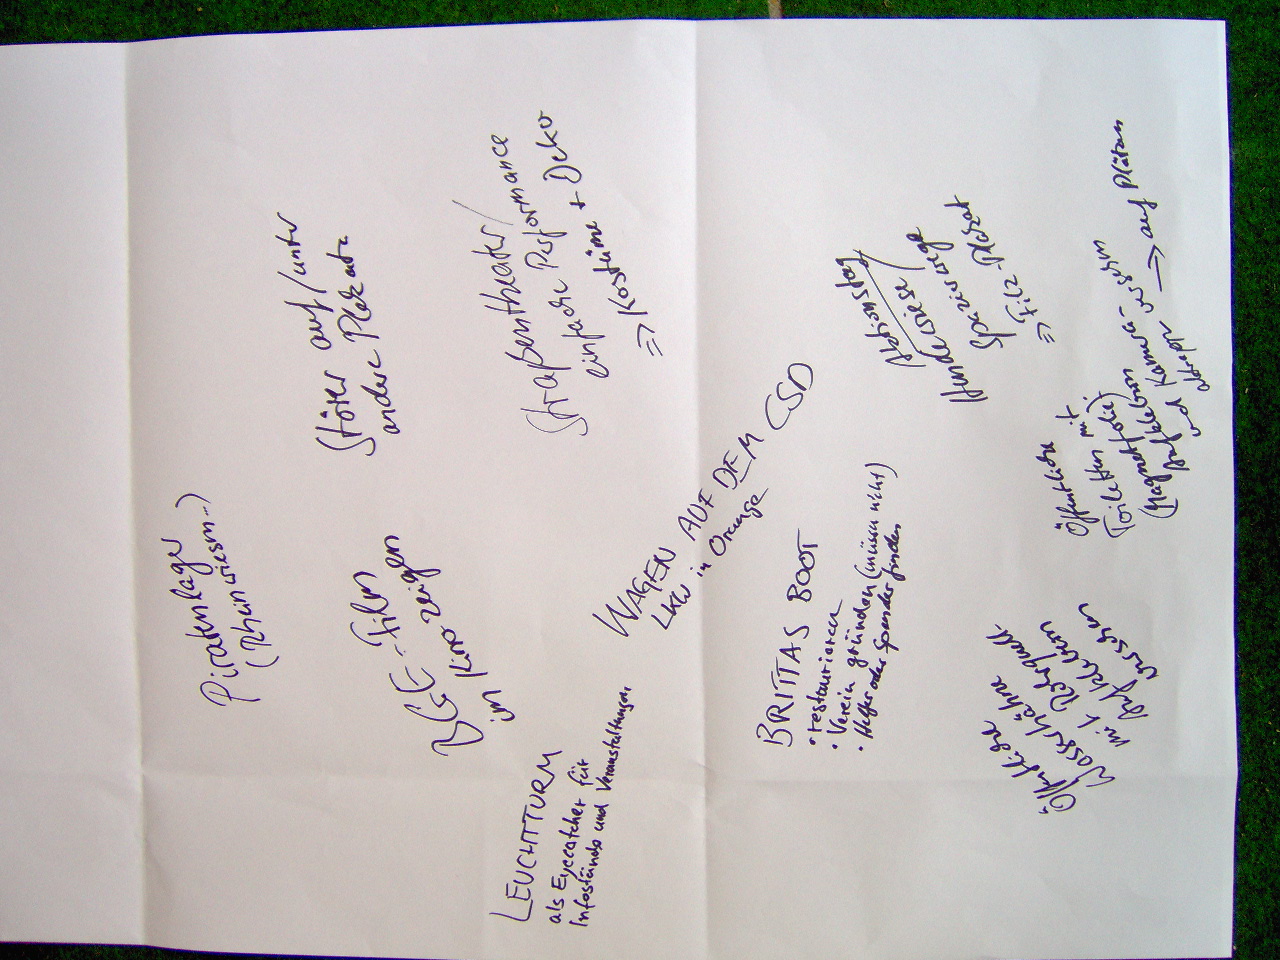 Piratenlager
(Rheinwiesen..)
Störer auf/unter
andere Plakate
BGE-Film
im Kino zeigen
Straßentheater/
einfache Performance
=> Kostüme + Deko
LEUCHTTURM
als Eyecatcher für
Infostände und Veranstaltungen
WAGEN AUF DEM CSD
LKW in Orange
BRITTAS BOOT
• restaurieren
• Verein gründen (müssen nicht)
• Helfer oder Spender finden
Aktionstag
Hundewiese/
Spazierwege
=> Filz-Plakat
Öffentliche
Wasserhähne
mit
Aufklebern
versehen
Öffentliche
Toiletten mit
(Magnetfolie!)
Aufklebern versehen
und Kamera-
=> auf Plätzen